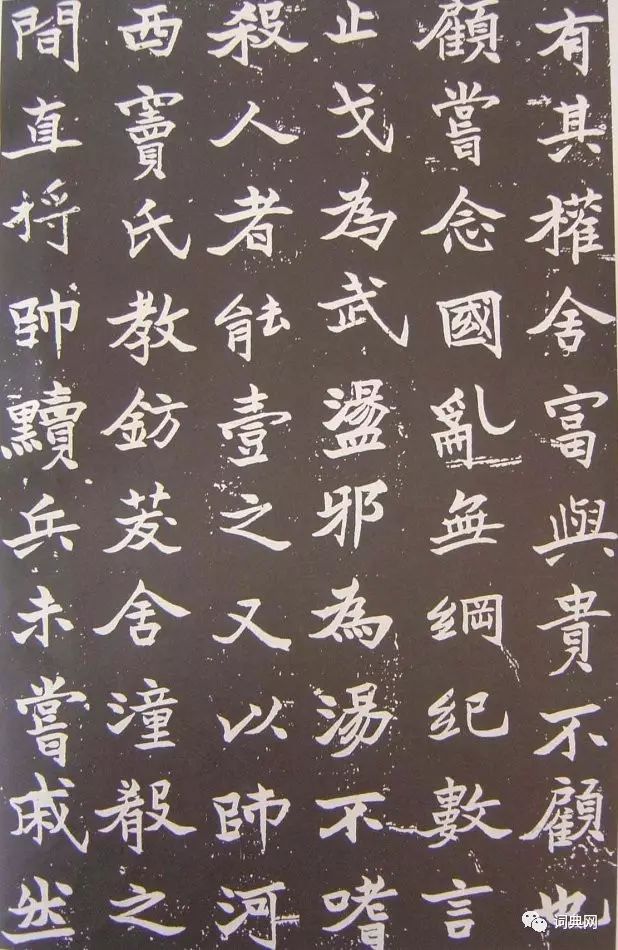 有其權舍富與貴不顧也
顧嘗念國亂無綱紀數言
止戈為武盪邪為湯不嗜
殺人者能壹之又以師河
西竇氏教鈁茇舍潼殽之
間直將帥黷兵未嘗戚然
词典网